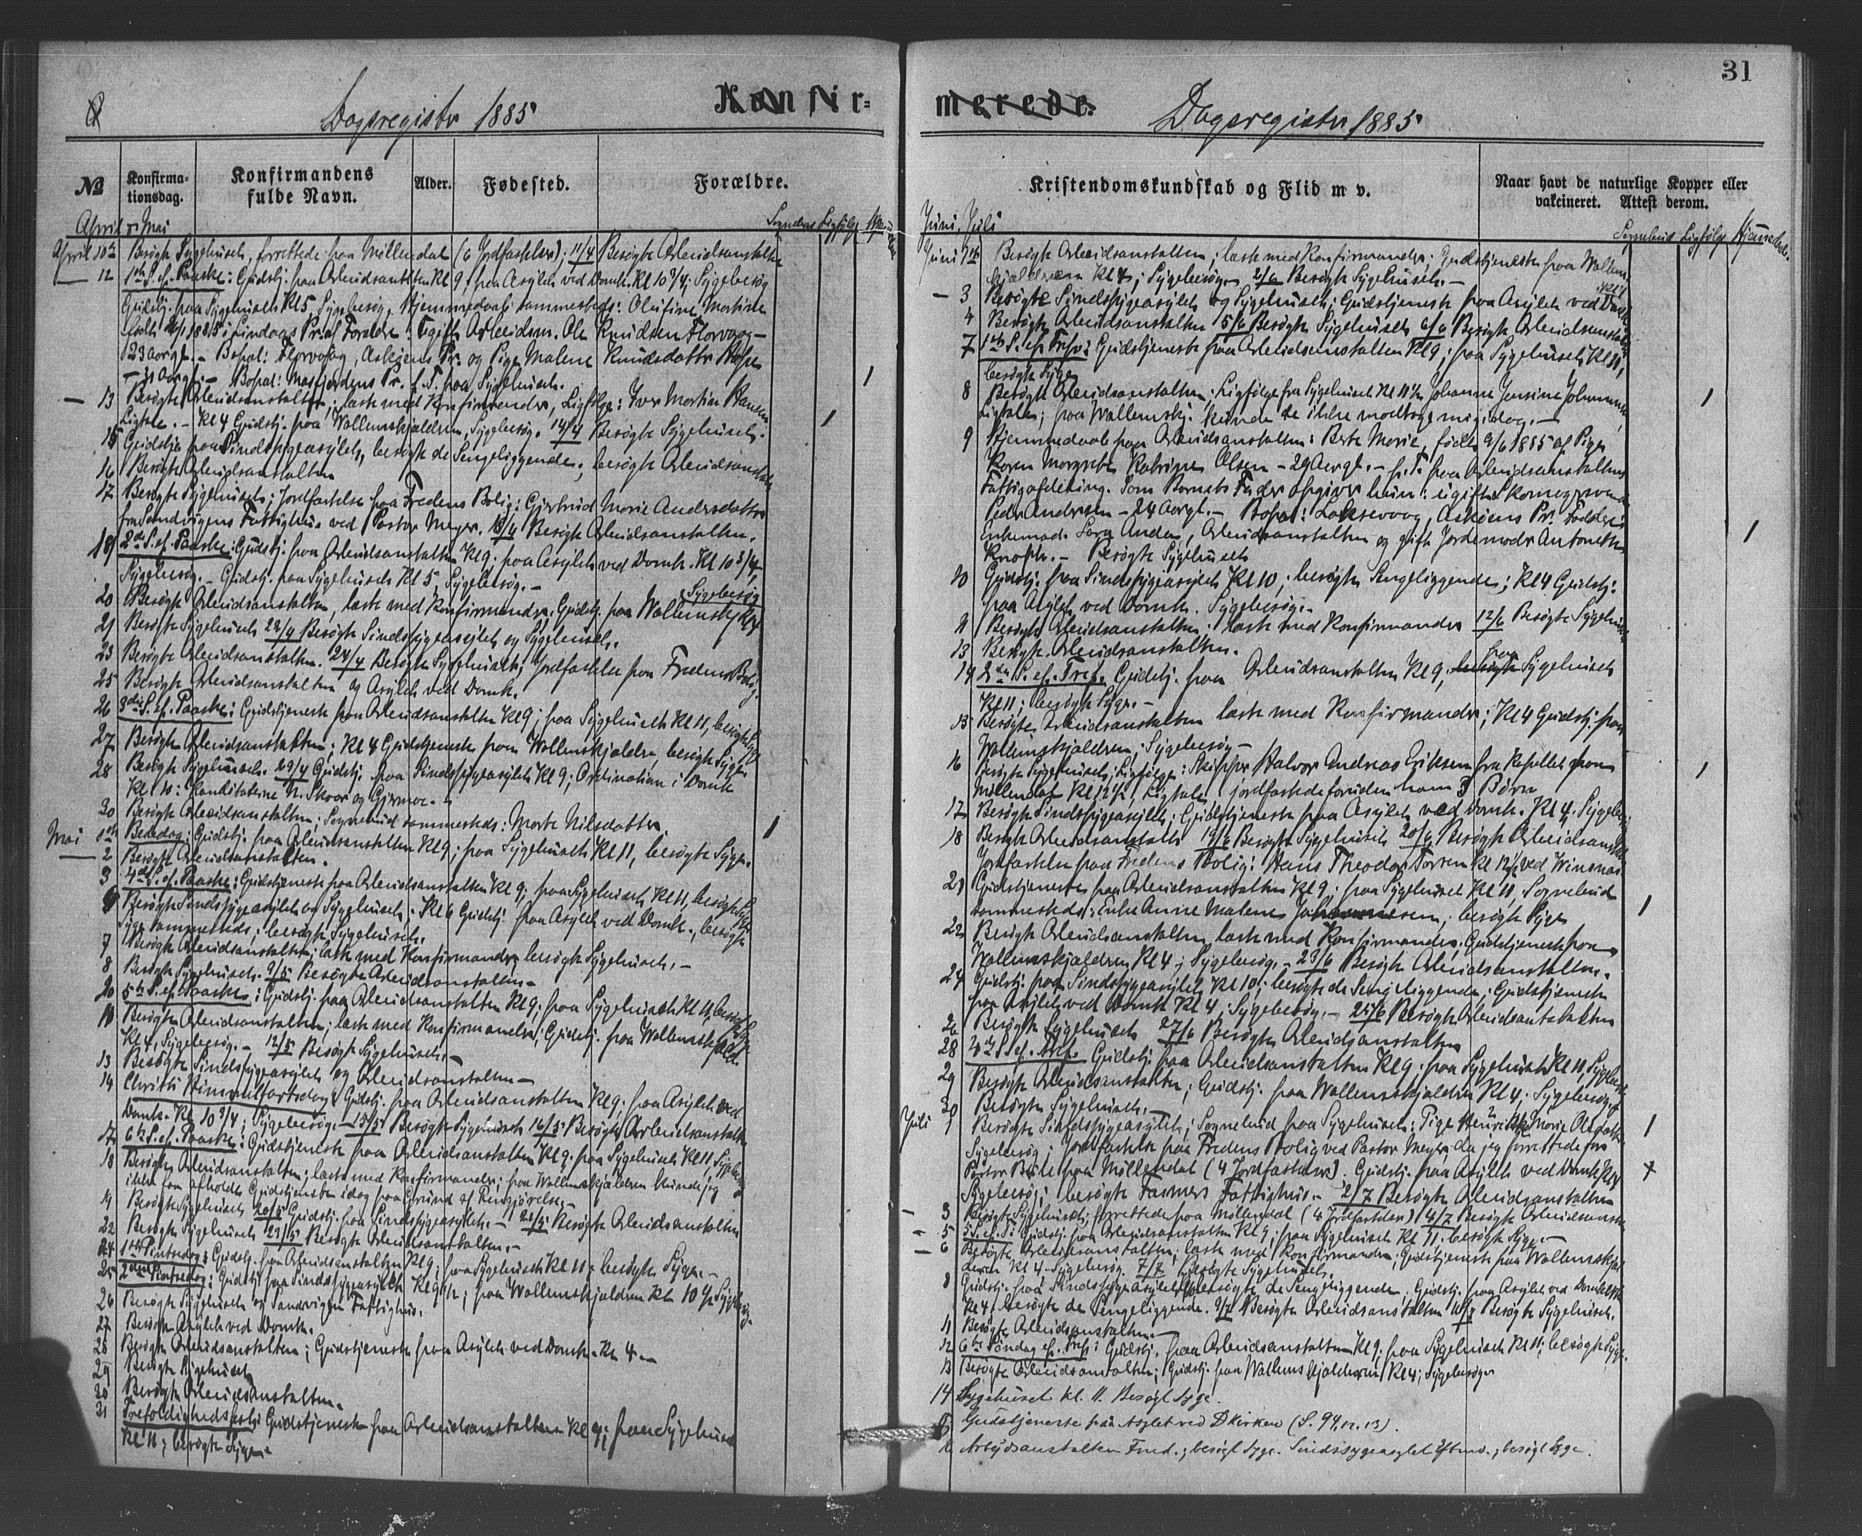 Dagsregister 1885
Konfir=
No
Konfirma-
tionsdag.
Konfirmandens
fulde Navn.
Alder.
Fødested.
Forældre.
April og Mai
Sognebud Ligfølge
April 10de Besøgte Sygehuset, forrettede paa Møllendal (6 Jordfæstelser); 11/4 Besøgte Arbeidsanstalten
12 1ste S. ef. Paaske: Gudstj. paa Arbeidsanstalten Kl 9, paa Asylet ved Domk. Kl 10 3/4; Sygebesøg
Gudstj. paa Sygehuset Kl 5, Sygebesøg, Hjemmedaab sammesteds: Olufine Martine
født 1885; Søndags Pr. af Forældre: Ugift Arbeidsm. Ole Knudsen Florvaag
23 aargl. – Bopal: Florvaag, Askøens Pr. og Pige Malene Knudsdatter
– 31 aargl. – Bopal: Masfjordens Pr. f. T. paa Sygehuset. 1
13 Besøgte Arbeidsanstalten; læste med Konfirmander, Ligfølge: Iver Martin Hansen
Ligtale. – Kl 4 Gudstj. paa Wallemskjældren, Sygebesøg. 14/4 Besøgte Sygehuset. 1
15 Gudstj. paa Sindssygeasylet, besøgte de Sengeliggende; besøgte Arbeidsanstalten
16 Besøgte Arbeidsanstalten
17 Besøgte Sygehuset; Jordfæstelse paa Fredens Bolig: Gjertrud Marie Andersdatter
fra Sandvigens Fattighus ved Pastor Meyer. 18/4 Besøgte Arbeidsanstalten.
19 2den S. ef. Paaske: Gudstj. paa Arbeidsanstalten Kl 9, paa Asylet ved Domk. Kl 10 3/4,
Sygebesøg. – Gudstj. paa Sygehuset Kl 5, Sygebesøg. –
20 Besøgte Arbeidsanstalten, læste med Konfirmander. Gudstj. paa Wallemskj. Kl 4 Sygebesøg
21 Besøgte Sygehuset 22/4 Besøgte Sindssygeasylet og Sygehuset.
23 Besøgte Arbeidsanstalten. 24/4 Besøgte Sygehuset; Jordfæstelse paa Fredens Bolig.
25 Besøgte Arbeidsanstalten og Asylet ved Domk.
26 3die S. ef. Paaske: Gudstjeneste paa Arbeidsanstalten Kl 9; paa Sygehuset Kl 11, besøgte Syge
27 Besøgte Arbeidsanstalten; Kl 4 Gudstjeneste paa Wallemskjældren, besøgte Syge
28 Besøgte Sygehuset. 29/4 Gudstj. paa Sindssygeasylet Kl 9; Ordination i Domk
Kl 10: Kandidaterne N. Skaar og Gjermoe. –
30 Besøgte Arbeidsanstalten; Sognebud sammesteds: Marte Nilsdatter 1
Mai 1ste Bededag: Gudstj. paa Arbeidsanstalten Kl 9; paa Sygehuset Kl 11, besøgte Syge.
2 Besøgte Arbeidsanstalten.
3 4de S. ef. Paaske: Gudstjeneste paa Arbeidsanstalten Kl 9; paa Sygehuset Kl 11, besøgte Syge
Besøgte Sindssygeasylet og Sygehuset. Kl 4 Gudstj. paa Asylet ved Domk., besøgte
Syge sammesteds; besøgte Sygehuset.
7 Besøgte Arbeidsanstalten; læste med Konfirmander besøgte Sygehuset. –
8 Besøgte Sygehuset. 9/5 Besøgte Arbeidsanstalten –
5te S. ef. Paaske: Gudstj. paa Arbeidsanstalten Kl 9; paa Sygehuset Kl 11, besøgte Syge
11 Besøgte Arbeidsanstalten; læste med Konfirmander; Gudstj. paa Wallemskjæld.
Kl 4, Sygebesøg. – 12/5 Besøgte Sygehuset. –
13 Besøgte Sindssygeasylet og Arbeidsanstalten –
14 Christi Himmelfartsdag: Gudstj. paa Arbeidsanstalten Kl 9, paa Asylet ved
Domk. Kl 10 3/4; Sygebesøg. – 15/5 Besøgte Sygehuset 16/5 Besøgte Arbeidsanstalten
17 6te S. ef. Paaske: Gudstjeneste paa Arbeidsanstalten Kl 9; paa Sygehuset Kl 11, Sygebesøg
18 Besøgte Arbeidsanstalten; læste med Konfirmander; paa Wallemskjældren kunde jeg
ikke faa afholdt Gudstjenesten idag paa Grund af Rengjørelse. –
19 Besøgte Sygehuset 20/5 Gudstj. paa Sindssygeasylet. – 21/5 Besøgte Arbeidsanstalten
22 Besøgte Sygehuset 23/5 Besøgte Arbeidsanstalten. –
24 1ste Pintsedag: Gudstj. paa Arbeidsanstalten Kl 9; paa Sygehuset Kl 11; besøgte Syge. –
25 2den Pintsedag: Gudstj. paa Sindssygeasylet Kl 9; paa Wallemskjældren Kl 10 1/2 Sygebesøg. –
26 Besøgte Sygehuset og Sandvigens Fattighus.
27 Besøgte Asylet ved Domk.
28 Besøgte Arbeidsanstalten; Gudstjeneste paa Asylet ved Domk. Kl 4. –
29 Besøgte Sygehuset
30 Besøgte Arbeidsanstalten.
31 Trefoldighedsfest: Gudstjeneste paa Arbeidsanstalten Kl 9; paa Sygehuset
Kl 11; besøgte Syge. –
31
merede.
Dagsregister 1885
Kristendomskundskab og Flid m v.
Naar havt de naturlige Kopper eller
vakcineret. Attest derom.
Juni, Juli
Sognebud Ligfølge Hjemmedaab.
Juni 1ste Besøgte Arbeidsanstalten, læste med Konfirmander. Gudstjeneste paa Wallem
skjældren Kl 4; Sygebesøg. 2/6 Besøgte Sygehuset. –
3 Besøgte Sindssygeasylet og Sygehuset; Gudstjeneste paa Asylet ved Domk. Kl 4
4 Besøgte Arbeidsanstalten 5/6 Besøgte Sygehuset 6/6 Besøgte Arbeidsanstalten
7 1ste S. ef. Tref.: Gudstjeneste paa Arbeidsanstalten Kl 9; paa Sygehuset Kl 11,
besøgte Syge
8 Besøgte Arbeidsanstalten, Ligfølge fra Sygehuset Kl 11 1/2 Johanne Jensine Johannesen 1
Ligtale; paa Wallemskj. kunde de ikke modtage mig idag. –
9 Hjemmedaab paa Arbeidsanstalten: Berte Marie, født 9/6 1885 af Pige
Karen Margrete Katrine Olsen – 29 aargl. – f. T. paa Arbeidsanstaltens
Fattigafdeling. Som Barnets Fader opgiver hun: ugift Skomagersvend
Peder Andersen – 24 aargl. – Bopal: Laksevaag, Askøens Pr. Faddere:
Enkemad. Sara Anda, Arbeidsanstalten og gift Jordemoder Antonette 1
Knoph. – Besøgte Sygehuset
10 Gudstj. paa Sindssygeasylet Kl 10, besøgte Sengeliggende; Kl 4 Gudstj.
paa Asylet ved Domk. Sygebesøg. –
11 Besøgte Arbeidsanstalten, læste med Konfirmander 12/6 Besøgte Sygehuset
13 Besøgte Arbeidsanstalten.
14 2den S. ef. Tref. Gudstj. paa Arbeidsanstalten Kl 9, paa Sygehuset
Kl 11; besøgte Syge. –
15 Besøgte Arbeidsanstalten læste med Konfirmander; Kl 4 Gudstj. paa
Wallemskjældren; Sygebesøg –
16 Besøgte Sygehuset; Ligfølge: Skipper Halvor Andreas Eriksen fra Kapellet paa 1
Møllendal Kl 12 1/2, Ligtale jordfæstede foruden ham 3 Børn
17 Besøgte Sindssygeasylet; Gudstjeneste paa Asylet ved Domk. Kl 4, Sygebesøg
18 Besøgte Arbeidsanstalten 19/6 Besøgte Sygehuset 20/6 Besøgte Arbeidsanstalten
Jordfæstelse paa Fredens Bolig: Hans Theodor
21 Gudstjeneste paa Arbeidsanstalten Kl 9; paa Sygehuset Kl 11, Sognebud 1
sammesteds: Enke Anne Malene Johannesen; besøgte Syge
22 Besøgte Arbeidsanstalten, læste med Konfirmander; Gudstjeneste paa
Wallemskjældren Kl 4; Sygebesøg. – 23/6 Besøgte Arbeidsanstalten.
24 Gudstj. paa Sindssygeasylet Kl 10; besøgte de Sengeliggende; Gudstjeneste
paa Asylet ved Domk Kl 4; Sygebesøg. – 25/6 Besøgte Arbeidsanstalten
26 Besøgte Sygehuset 27/6 Besøgte Arbeidsanstalten
28 4de S. ef. Tref. Gudstj. paa Arbeidsanstalten Kl 9, paa Sygehuset Kl 11, Sygebesøg
29 Besøgte Arbeidsanstalten; Gudstj. paa Wallemskjældren Kl 4; Sygebesøg
30 Besøgte Sygehuset. –
Juli 1 Besøgte Sindssygeasylet; Sognebud paa Sygehuset: Pige Henrikke Marie 1
Sygebesøg; Jordfæstelse paa Fredens Bolig ved Pastor Meyer da jeg forrettede for
Pastor paa Møllendal (4 Jordfæstelser). Gudstj. paa Asylet ved Domk Kl 4 +
Sygebesøg; besøgte Fattighus. – 2/7 Besøgte Arbeidsanstalten
3 Besøgte Sygehuset; forrettede paa Møllendal (4 Jordfæstelser) 4/7 Besøgte Arbeidsanstalten
5 5 S. ef. T.: Gudstj. paa Arbeidsanstalten Kl 9; paa Sygehuset Kl 11. besøgte Syge. –
6 Besøgte Arbeidsanstalten; læste med Konfirmander; Gudstjeneste paa Wallemskjæl
deren Kl 4 Sygebesøg 7/7 Besøgte Sygehuset.
8 Gudstj. paa Sindssygeasylet besøgte de Sengeliggende. Gudstj. paa Asylet ved Domkirken
Kl 4, besøgte de Sengeliggende. 9/7 Besøgte Arbeidsanstalten 10/7 Besøgte Sygehuset.
11 Besøgte Arbeidsanstalten –
12 6te Søndag ef. Tref: Gudstj. paa Arbeidsanstalten Kl 9; paa Sygehuset Kl 11; besøgte Syge.
13 Besøgte Arbeidsanstalten; Gudstj. paa Wallemskjælderen Kl 4; Sygebesøg
14 Sygehuset kl. 11. Besøgt Syge.
Gudstjeneste paa Asylet ved Dkirken (S. 94, 12. 13).
Arbejdsanstalten Fmd.; besøgt Syge. Sindssygeasylet Eftmd.; besøgt Syge.